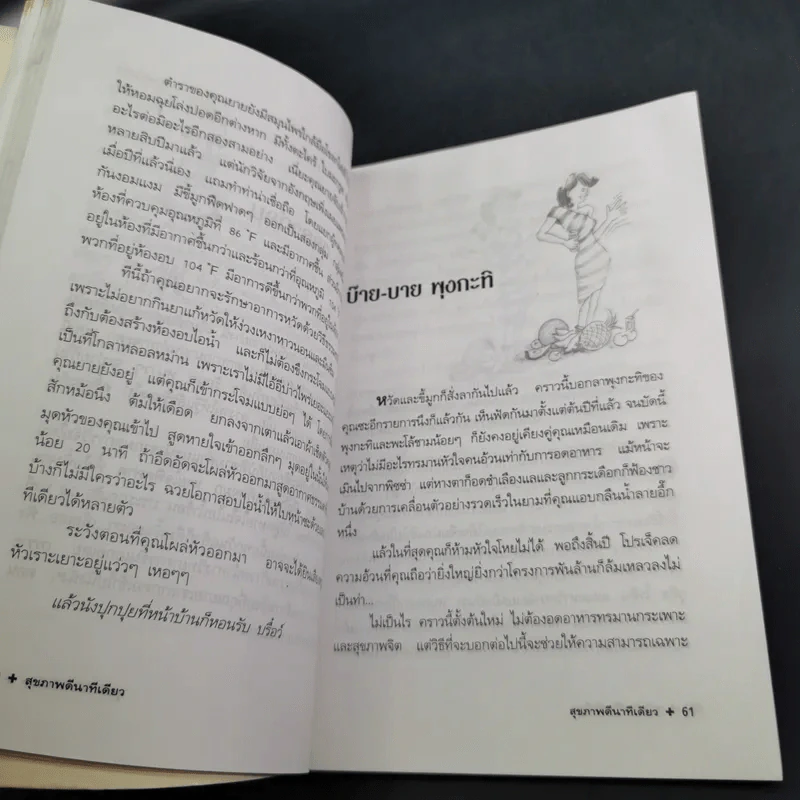 ตำราของคุณยายยังมีสมุนไพรใกล้มือ
ให้หอมฉุยโล่งปอดอีกต่างหาก มีทั้งตะไคร้
อะไรต่อมิอะไรอีกสองสามอย่าง เนี่ยะคุณยาย
หลายสิบปีมาแล้ว แต่นักวิจัยจากอังกฤษเพิ่ง
เมื่อปีที่แล้วนี่เอง แถมทำท่าน่าเชื่อถือ โดย
กันงอมแงม มีขี้มูกฟืดฟาดๆ ออกเป็นสองกลุ่ม
ห้องที่ควบคุมอุณหภูมิที่ 86 °F และมีอากาศชื้น
อยู่ในห้องที่มีอากาศชื้นกว่าและร้อนกว่าที่อุณหภูมิ
พวกที่อยู่ห้องอบ 104 °F มีอาการดีขึ้นกว่าพวกที่อยู่
ทีนี้ถ้าคุณอยากจะรักษาอาการหวัดด้วยวิธี
เพราะไม่อยากกินยาแก้หวัดให้ง่วงเหงาหาวนอนและ
ถึงกับต้องสร้างห้องอบไอน้ำ และก็ไม่ต้องขึงกระโจม
เป็นที่โกลาหลอลหม่าน เพราะเราไม่มีไอ้อีบ่าวไพร่
คุณยายยังอยู่ แต่คุณก็เข้ากระโจมแบบย่อๆ ได้
สักหม้อนึง ต้มให้เดือด ยกลงจากเตาแล้วเอาผ้าเช็ดตัว
มุดหัวของคุณเข้าไป สูดหายใจเข้าออกลึกๆ มุดอยู่ใน
น้อย 20 นาที ถ้าอึดอัดจะโผล่หัวออกมาสูดอากาศ
บ้างก็ไม่มีใครว่าอะไร ฉวยโอกาสอบไอน้ำให้ใบหน้าซะด้วย
ทีเดียวได้หลายตัว
ระวังตอนที่คุณโผล่หัวออกมา อาจจะได้ยินเสียง
หัวเราะเยาะอยู่แว่วๆ เหอๆๆ
แล้วนังปุกปุยที่หน้าบ้านก็หอนรับ บรื๋อว์
✚ สุขภาพดีนาทีเดียว
บ๊าย-บาย พุงกะทิ
หวัดและขี้มูกก็สั่งลากันไปแล้ว คราวนี้บอกลาพุงกะทิของ
คุณซะอีกรายการนึงก็แล้วกัน เห็นฟัดกันมาตั้งแต่ต้นปีที่แล้ว จนบัดนี้
พุงกะทิและพะโล้ชามน้อยๆ ก็ยังคงอยู่เคียงคู่คุณเหมือนเดิม เพราะ
เหตุว่าไม่มีอะไรทรมานหัวใจคนอ้วนเท่ากับการอดอาหาร แม้หน้าจะ
เมินไปจากพิซซ่า แต่หางตาก็อดชำเลืองแลและลูกกระเดือกก็ฟ้องชาว
บ้านด้วยการเคลื่อนตัวอย่างรวดเร็วในยามที่คุณแอบกลืนน้ำลายอึ๊ก
หนึ่ง
แล้วในที่สุดคุณก็ห้ามหัวใจโหยไม่ได้ พอถึงสิ้นปี โปรเจ็คลด
ความอ้วนที่คุณถือว่ายิ่งใหญ่ยิ่งกว่าโครงการพันล้านก็ล้มเหลวลงไม่
เป็นท่า...
ไม่เป็นไร คราวนี้ตั้งต้นใหม่ ไม่ต้องอดอาหารทรมานกระเพาะ
และสุขภาพจิต แต่วิธีที่จะบอกต่อไปนี้จะช่วยให้ความสามารถเฉพาะ
สุขภาพดีนาทีเดียว ✚ 61